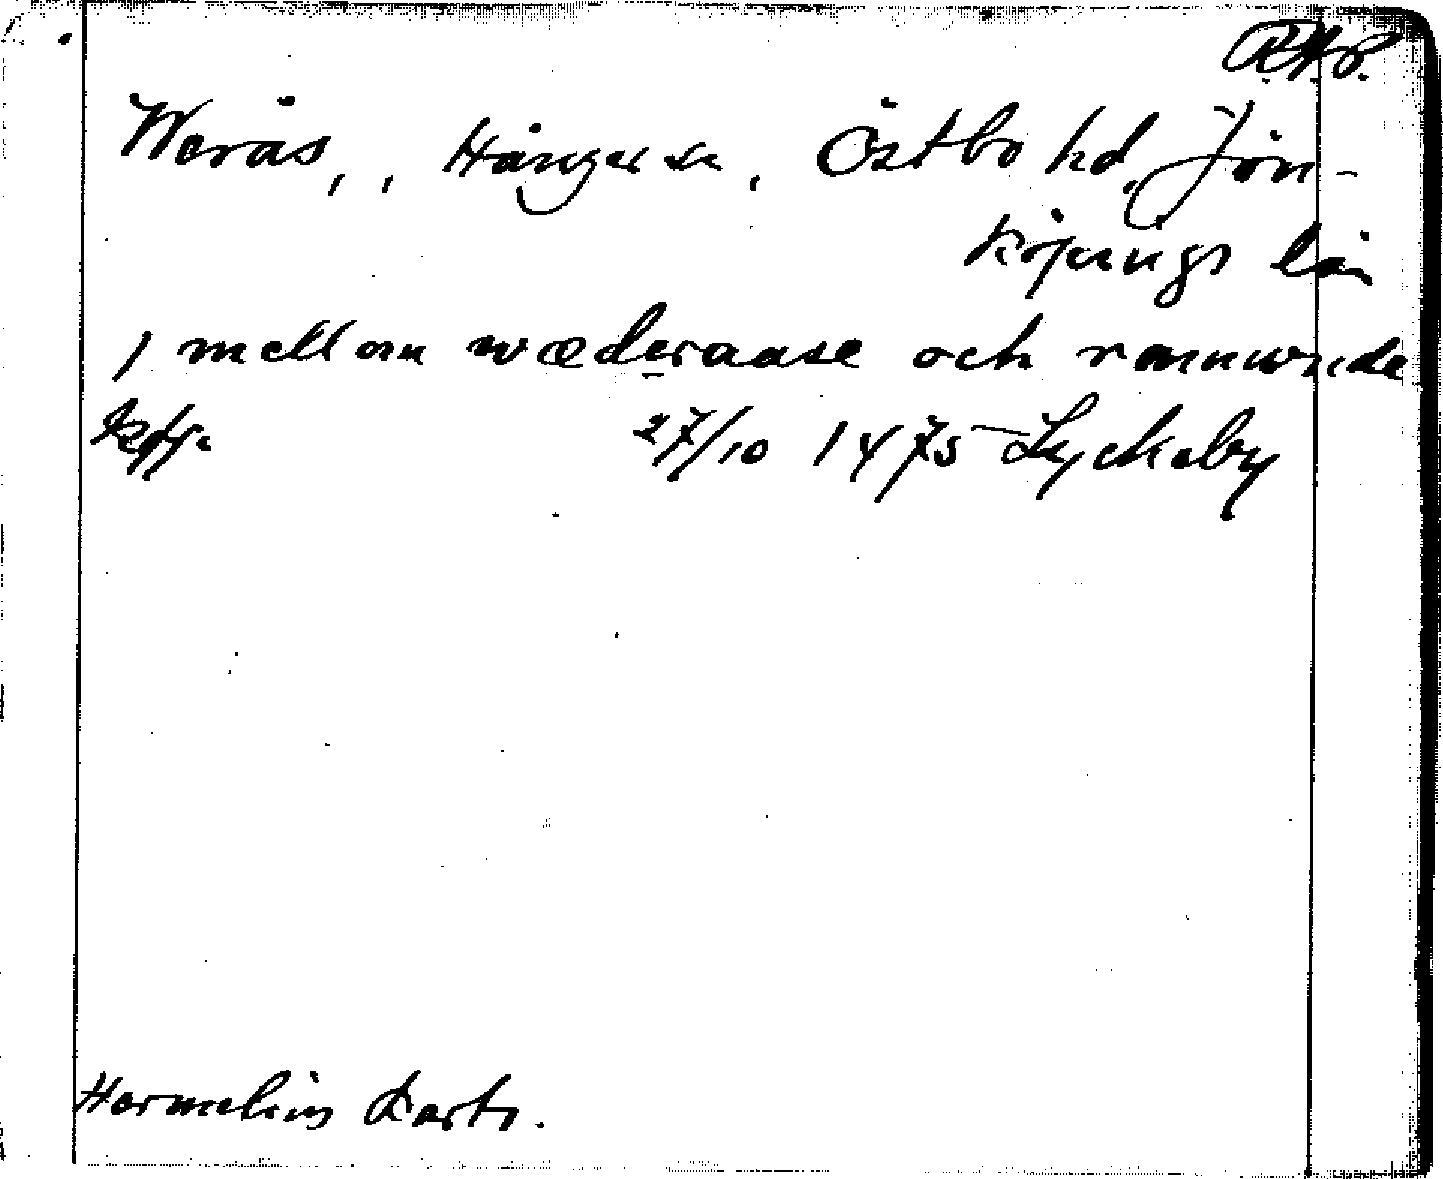 R.A.P.
Werås,, Hånger sn, Östbo hd, Jön-
köpings län
j mellom wæderaase och ramwnde
27/10 1475 Lyckeby
Hermelins Karta.